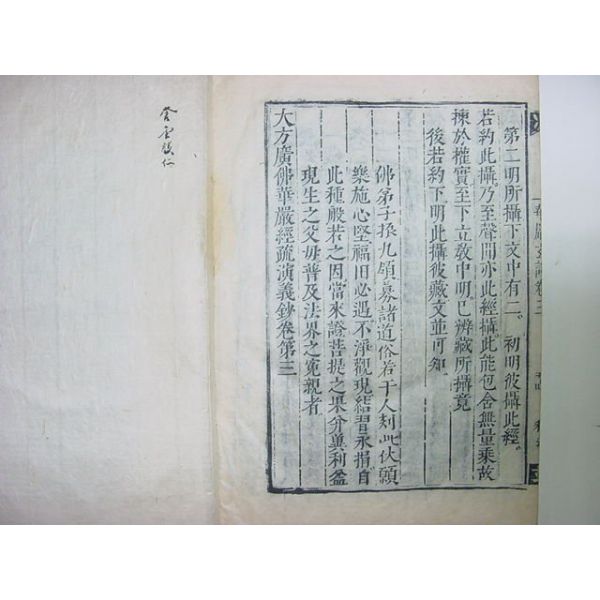 第二明所攝下文中有二。初明彼攝此經。
若約此攝。乃至聲聞亦此經攝。此能包含無量乘故
揀於權實至下立敎中明。已辨藏所攝竟
後若約下明此攝彼藏文並可知。
佛弟子振九領募諸道俗若干人刻此伏願
樂施心堅福田必遇。不淨觀現結習永捐。自
此種般若之因當來證菩提之果分奠利益
現生之父母普及法界之寃親者
大方廣佛華嚴經疏演義鈔卷第三